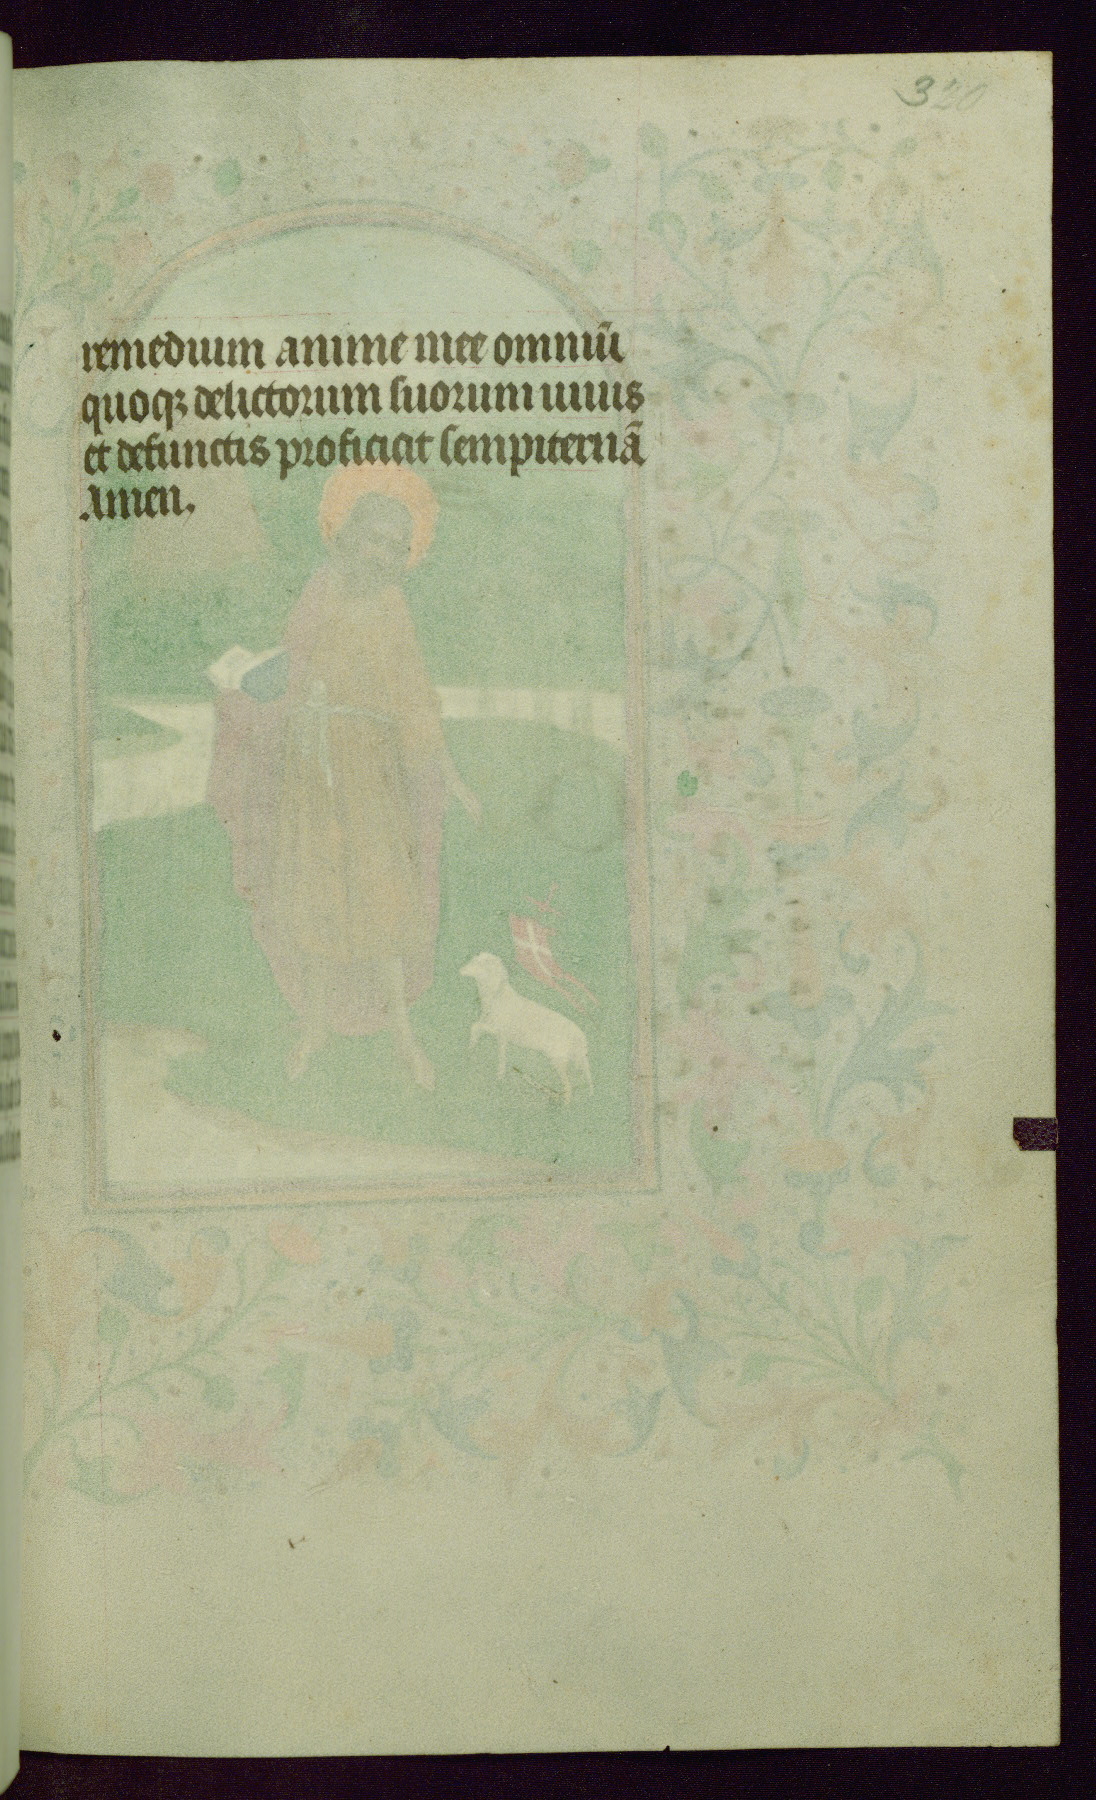 320
remedium anime mee omniū
quoqꝫ delictorum suorum uiuis
et defunctis proficicit sempiternā
Amen.